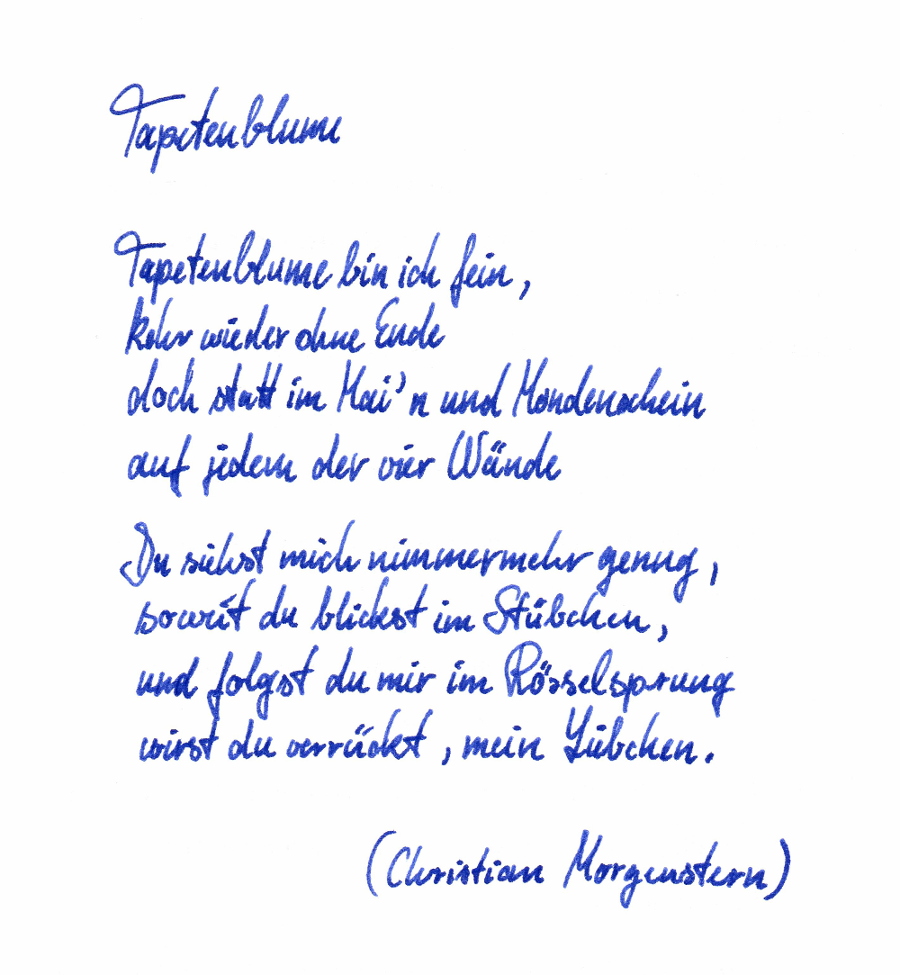 Tapetenblume
Tapetenblume bin ich fein,
kehr wieder ohne Ende
doch statt im Mai'n und Mondenschein
auf jedem der vier Wände
Du siehst mich nimmermehr genug,
soweit du blickst im Stübchen,
und folgst du mir im Rösselsprung
wirst du verrückt, mein Lübchen.
(Christian Morgenstern)